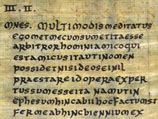 III. II.
MNES. MULTIMODISMEDITATUS
EGOMETMECUMSUMETITAESSE
ARBITRORHOMINIAMICOQUI
ESTAMICUSITAUTINOMEN
POSSIDETNISIDEOSEINIL
PRAESTAREIDOPERAEXPER
TUSSUMESSEITANAMUTIN
EPHESUMHINCABIIHOCFACTUMST
FERMEABHINCBIENNIUMEX